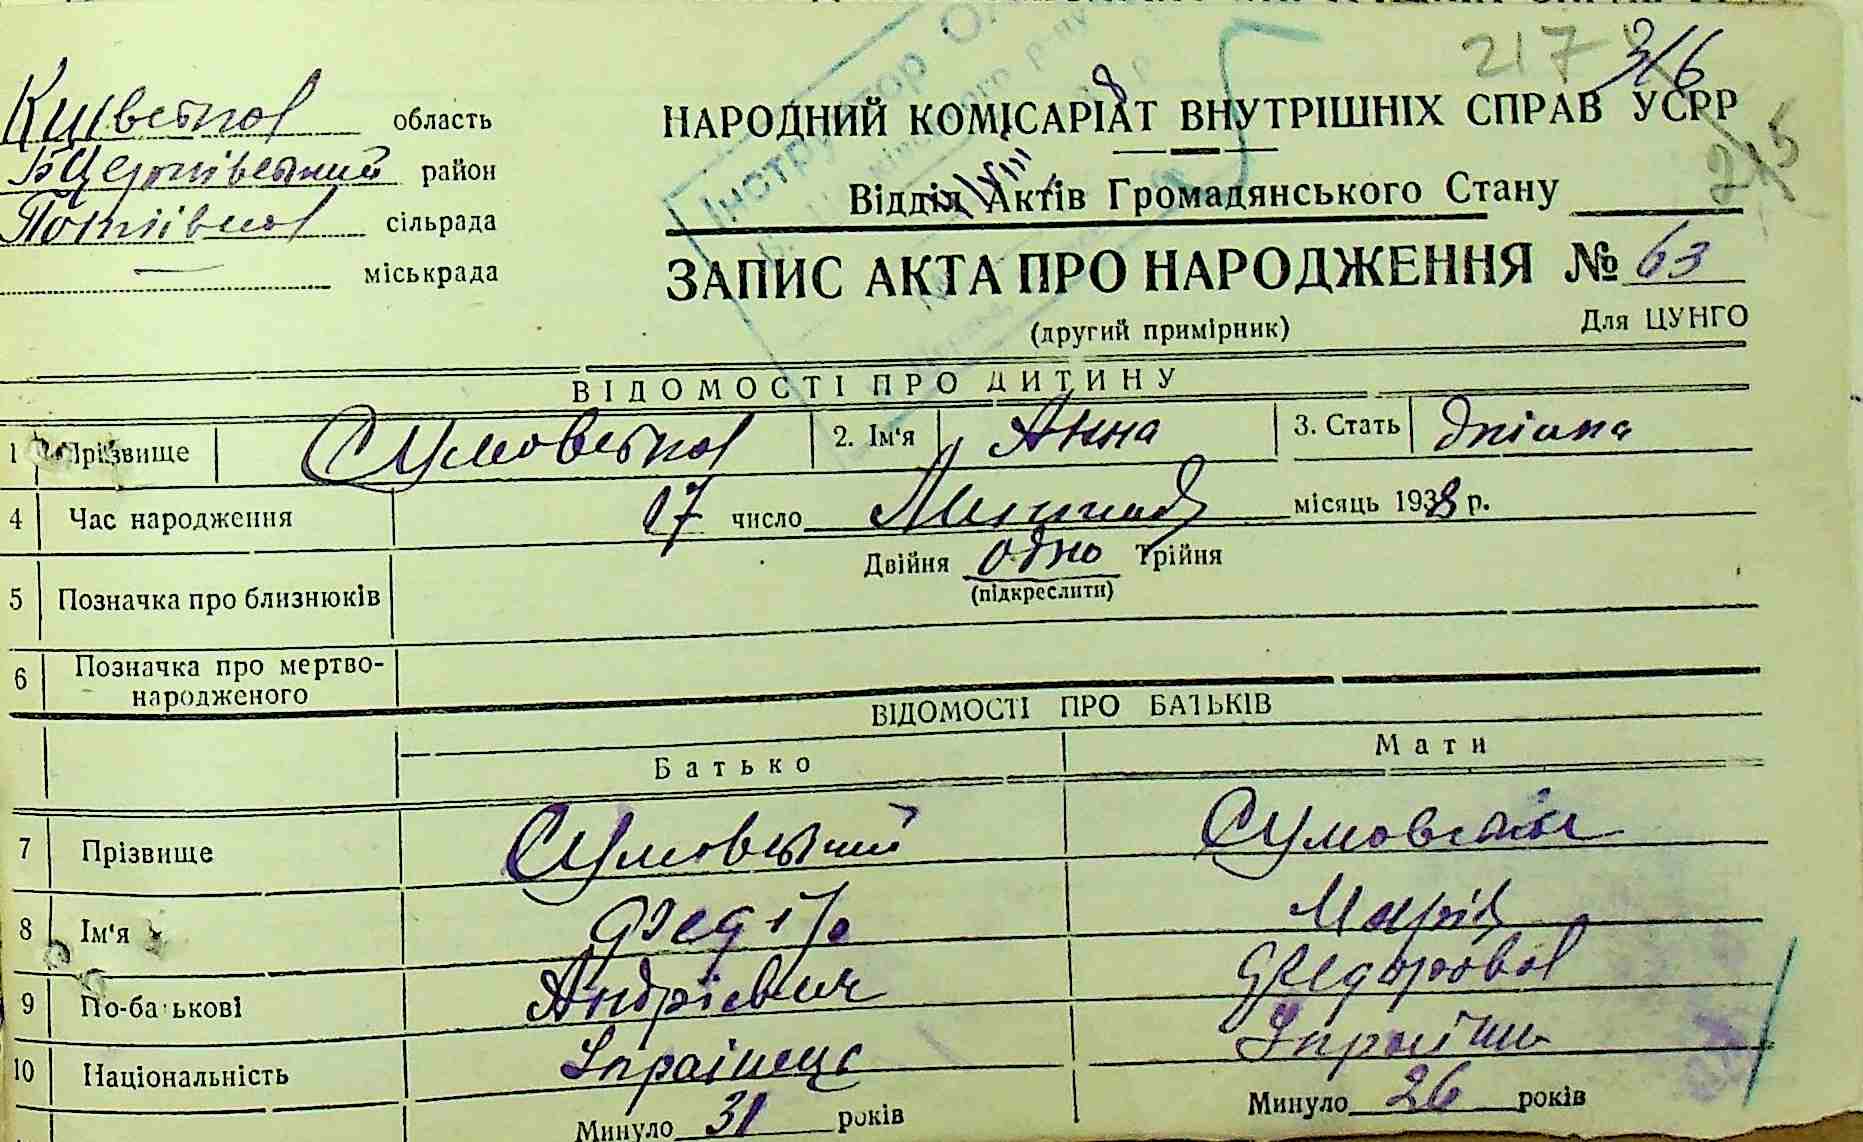 217 316
215
Київська область
БЦерківський район
Потіївська сільрада
— міськрада
НАРОДНИЙ КОМІСАРІАТ ВНУТРІШНІХ СПРАВ УСРР
Відділ Актів Громадянського Стану
ЗАПИС АКТА ПРО НАРОДЖЕННЯ № 63
(другий примірник) Для ЦУНГО
Інструктор
ВІДОМОСТІ ПРО ДИТИНУ
1 Прізвище Сумовська 2. Ім'я Анна 3. Стать жіноча
4 Час народження 17 число Листопад місяць 1938 р.
Двійня одно Трійня
5 Позначка про близнюків (підкреслити)
6 Позначка про мертво-
народженого
ВІДОМОСТІ ПРО БАТЬКІВ
Батько Мати
7 Прізвище Сумовський Сумовська
8 Ім'я Федір Марія
9 По-батькові Андрієвич Федорова
10 Національність Українець Українка
Минуло 31 років Минуло 26 років